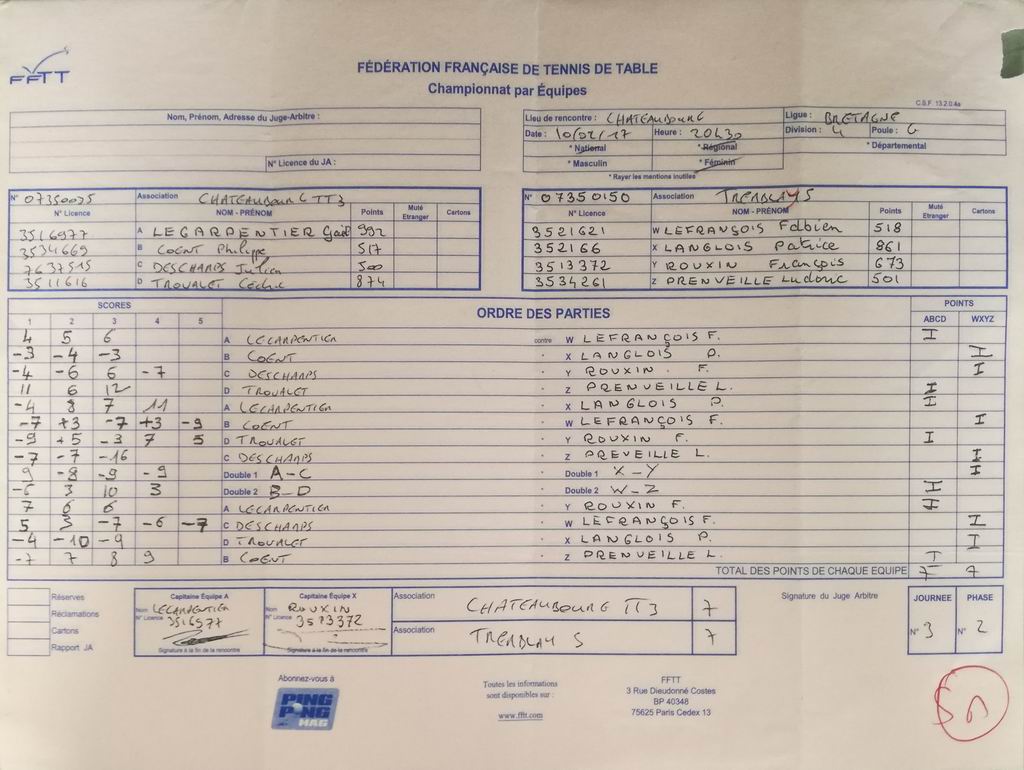 FFTT
FÉDÉRATION FRANÇAISE DE TENNIS DE TABLE
Championnat par Équipes
C.S.F. 13.2.0.4a
Nom, Prénom, Adresse du Juge-Arbitre :
N° Licence du JA :
Lieu de rencontre : CHATEAUBOURG Ligue : BRETAGNE
Date : 10/02/17 Heure : 20H30 Division : 4 Poule : G
* National * Régional * Départemental
* Masculin * Féminin
* Rayer les mentions inutiles
N° 07350035 Association CHATEAUBOURG TT3
N° Licence NOM - PRÉNOM Points Muté Etranger Cartons
3516977 A LECARPENTIER Gaël 992
3534669 B COENT Philippe 517
7637515 C DESCHAMPS Julien 500
3511616 D TROUALET Cédric 874
N° 07350150 Association TREMBLAY 5
N° Licence NOM - PRÉNOM Points Muté Etranger Cartons
3521621 W LEFRANÇOIS Fabien 518
352166 X LANGLOIS Patrice 861
3513372 Y ROUXIN François 673
3534261 Z PRENVEILLE Ludovic 501
SCORES ORDRE DES PARTIES POINTS
1 2 3 4 5 ABCD WXYZ
4 5 6 A LECARPENTIER contre W LEFRANÇOIS F. I
-3 -4 -3 B COENT X LANGLOIS P. I
-4 -6 6 -7 C DESCHAMPS Y ROUXIN F. I
11 6 12 D TROUALET Z PRENVEILLE L. I
-4 8 7 11 A LECARPENTIER X LANGLOIS P. I
-7 +3 -7 +3 -9 B COENT W LEFRANÇOIS F. I
-9 +5 -3 7 5 D TROUALET Y ROUXIN F. I
-7 -7 -16 C DESCHAMPS Z PREVEILLE L. I
9 -8 -9 -9 Double 1 A-C Double 1 X-Y I
-6 3 10 3 Double 2 B-D Double 2 W-Z I
7 6 6 A LECARPENTIER Y ROUXIN F. I
5 3 -7 -6 -7 C DESCHAMPS W LEFRANÇOIS F. I
-4 -10 -9 D TROUALET X LANGLOIS P. I
-7 7 8 9 B COENT Z PRENVEILLE L. I
TOTAL DES POINTS DE CHAQUE EQUIPE 7 7
Réserves
Réclamations
Cartons
Rapport JA
Capitaine Équipe A
Nom LECARPENTIER
N° Licence 3516977
Signature à la fin de la rencontre
Capitaine Équipe X
Nom ROUXIN
N° Licence 3513372
Signature à la fin de la rencontre
Association CHATEAUBOURG TT3 7
Association TREMBLAY 5 7
Signature du Juge Arbitre
JOURNEE PHASE
N° 3 N° 2
Abonnez-vous à
PING PONG MAG
Toutes les informations
sont disponibles sur :
www.fftt.com
FFTT
3 Rue Dieudonné Costes
BP 40348
75625 Paris Cedex 13